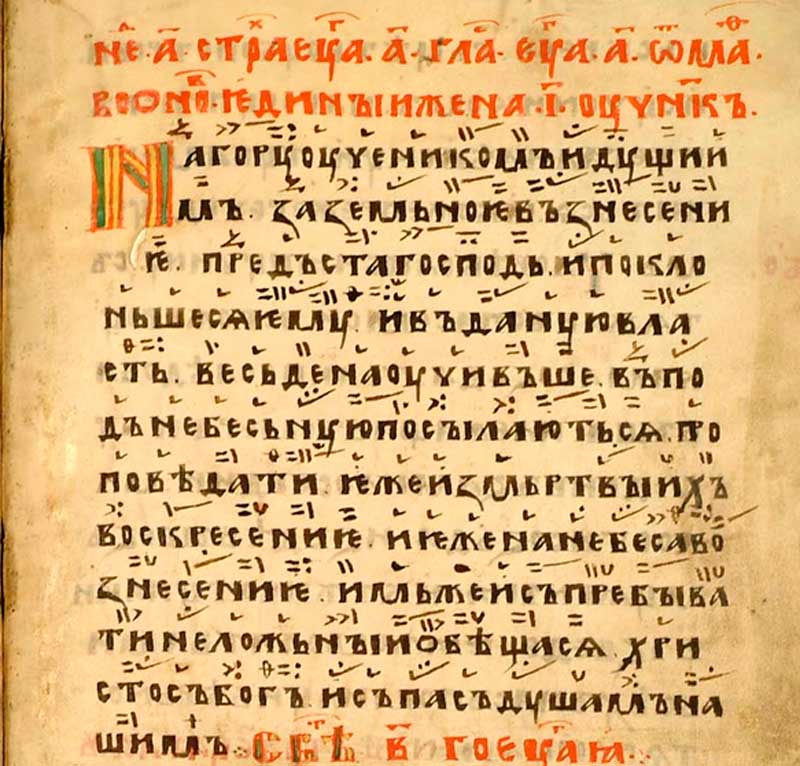 не҇ · а҃ · стр҇аец҇а · а҃ · гла҇ · ец҇а · а҃ · ѿмла҇ ·
во оно҇ · ѥдинꙑи жена · і҃ · оцꙋник҇ъ ·
Нагорꙋ оцꙋеникомъ идꙋщии
мъ · за земльноѥ възнесени
ѥ · предъста господь · и покло
ньшесѧ ѥмꙋ · и въданꙋю вла
сть · весьде наоцꙋивъше · въ по
дъ небесьнꙋю посꙑлаютьсѧ · про
поведати · ѥже из мьртвꙑихъ
воскресениѥ · и ѥже на небеса во
знесениѥ · имьже и съпребꙑва
ти неложьнꙑи обещасѧ · хри
стосъ богъ · и съпасъ дꙋшамъ на
шимъ ·